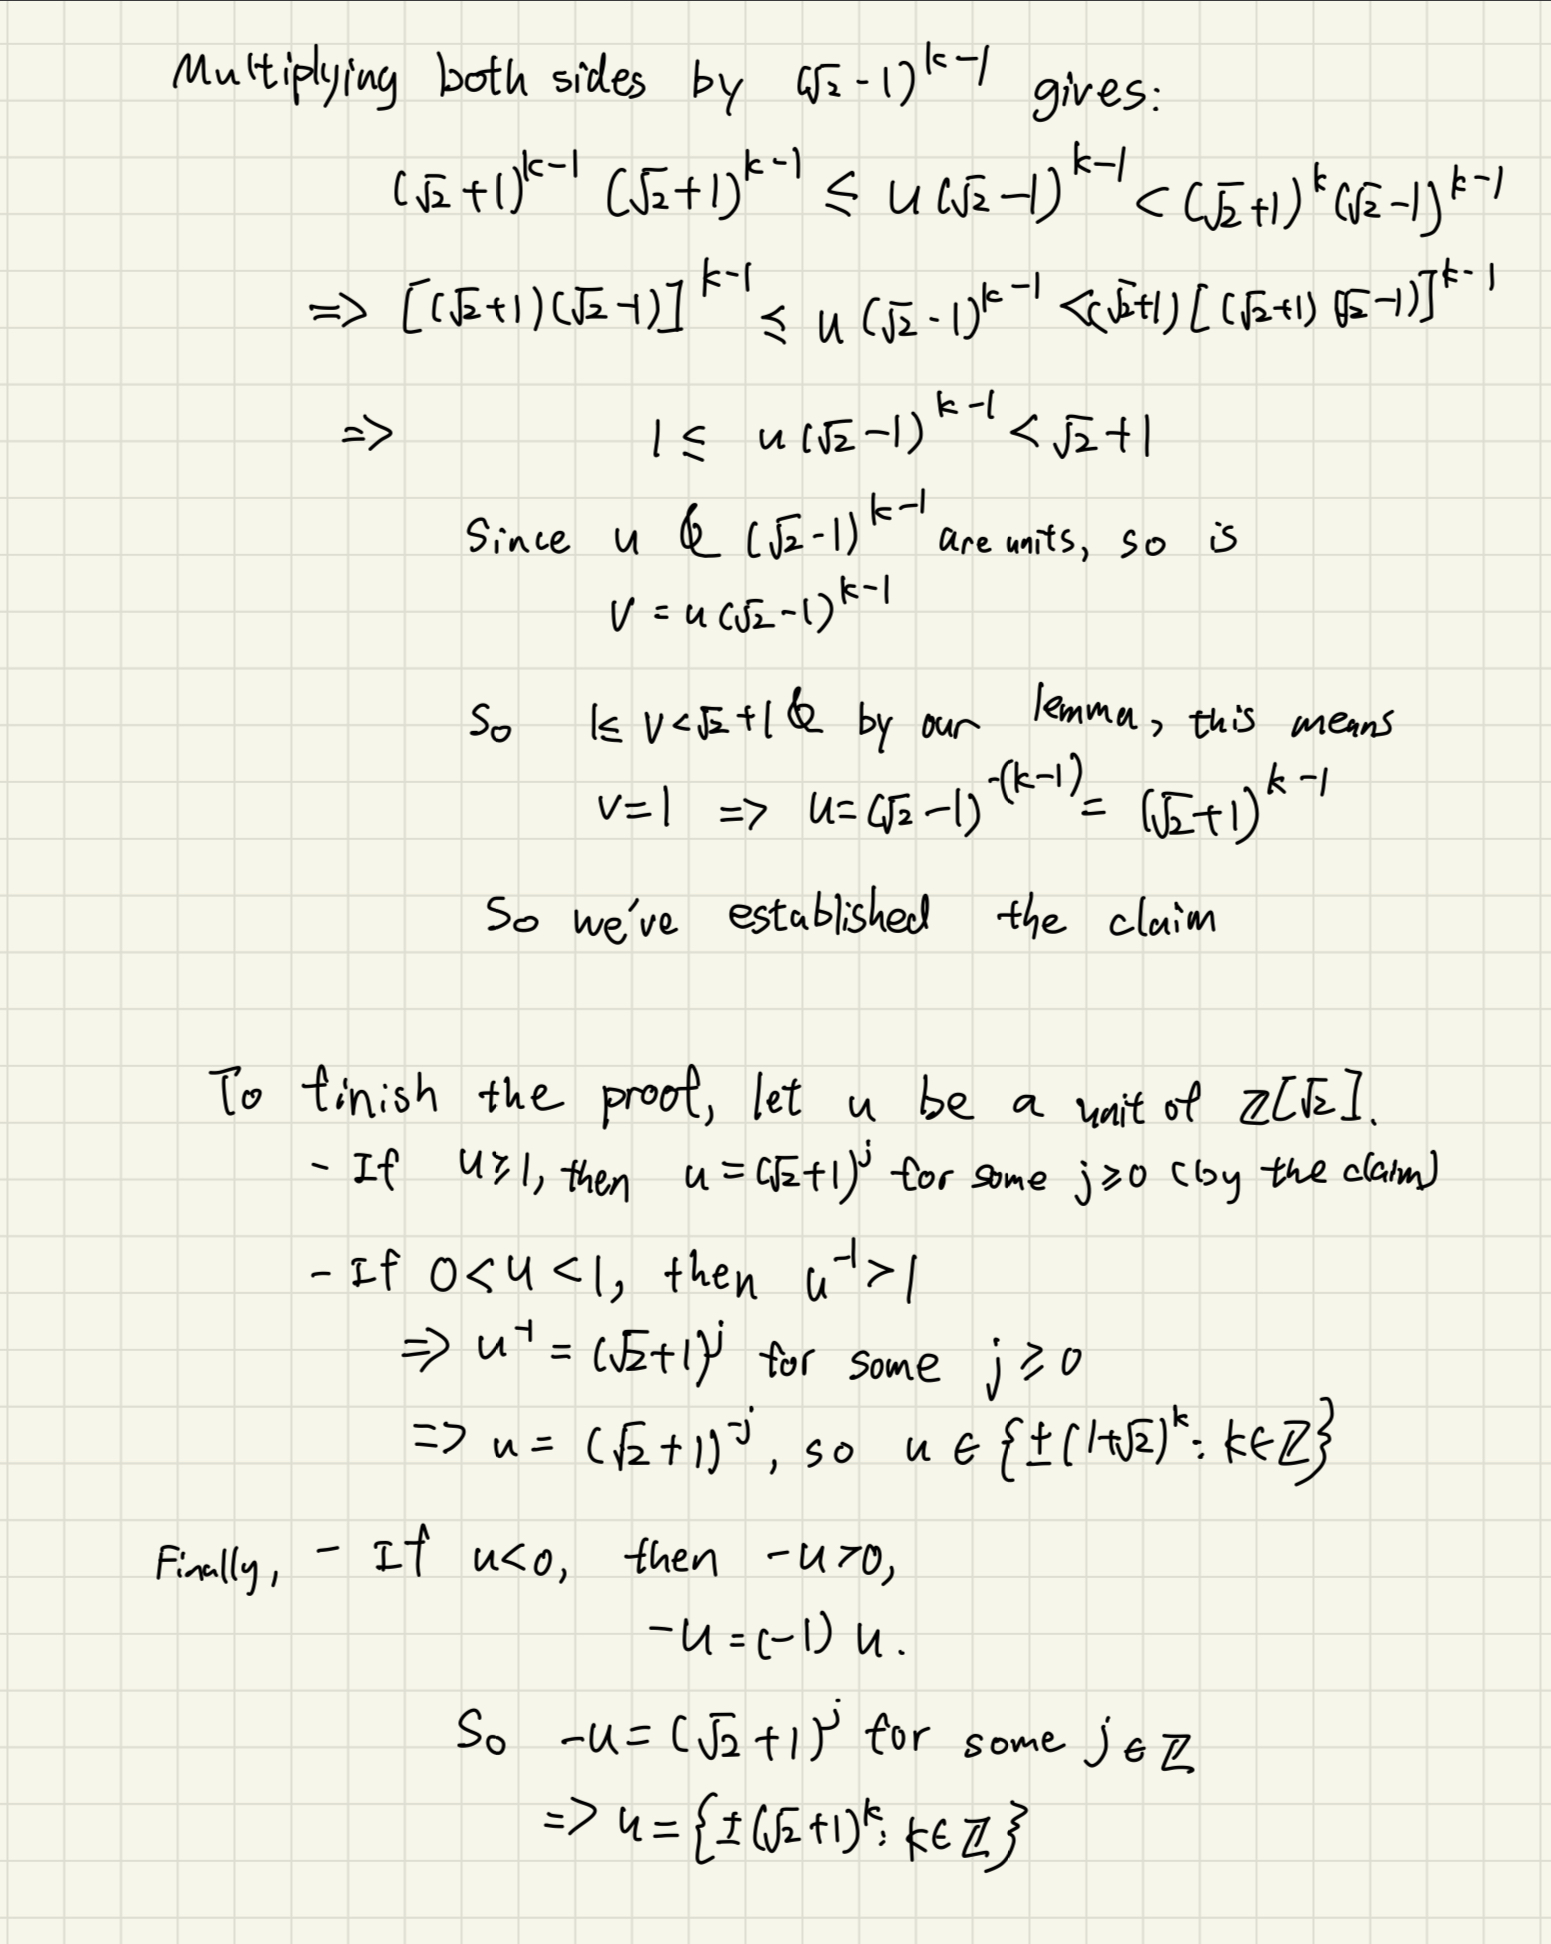 Multiplying both sides by (√2 - 1)^{k-1} gives:
(√2 + 1)^{k-1} (√2 + 1)^{k-1} ≤ u (√2 - 1)^{k-1} < (√2 + 1)^k (√2 - 1)^{k-1}
=> [(√2 + 1)(√2 - 1)]^{k-1} ≤ u (√2 - 1)^{k-1} < (√2 + 1) [(√2 + 1) (√2 - 1)]^{k-1}
=> 1 ≤ u (√2 - 1)^{k-1} < √2 + 1
Since u & (√2 - 1)^{k-1} are units, so is
V = u (√2 - 1)^{k-1}
So 1 ≤ V < √2 + 1 & by our lemma, this means
V = 1 => u = (√2 - 1)^{-(k-1)} = (√2 + 1)^{k-1}
So we've established the claim
To finish the proof, let u be a unit of ℤ[√2].
- If u ≥ 1, then u = (√2 + 1)^j for some j ≥ 0 (by the claim)
- If 0 < u < 1, then u^{-1} > 1
=> u^{-1} = (√2 + 1)^j for some j ≥ 0
=> u = (√2 + 1)^{-j}, so u ∈ {± (1 + √2)^k : k ∈ ℤ}
Finally, - If u < 0, then -u > 0,
-u = (-1) u.
So -u = (√2 + 1)^j for some j ∈ ℤ
=> u = {± (√2 + 1)^k : k ∈ ℤ}